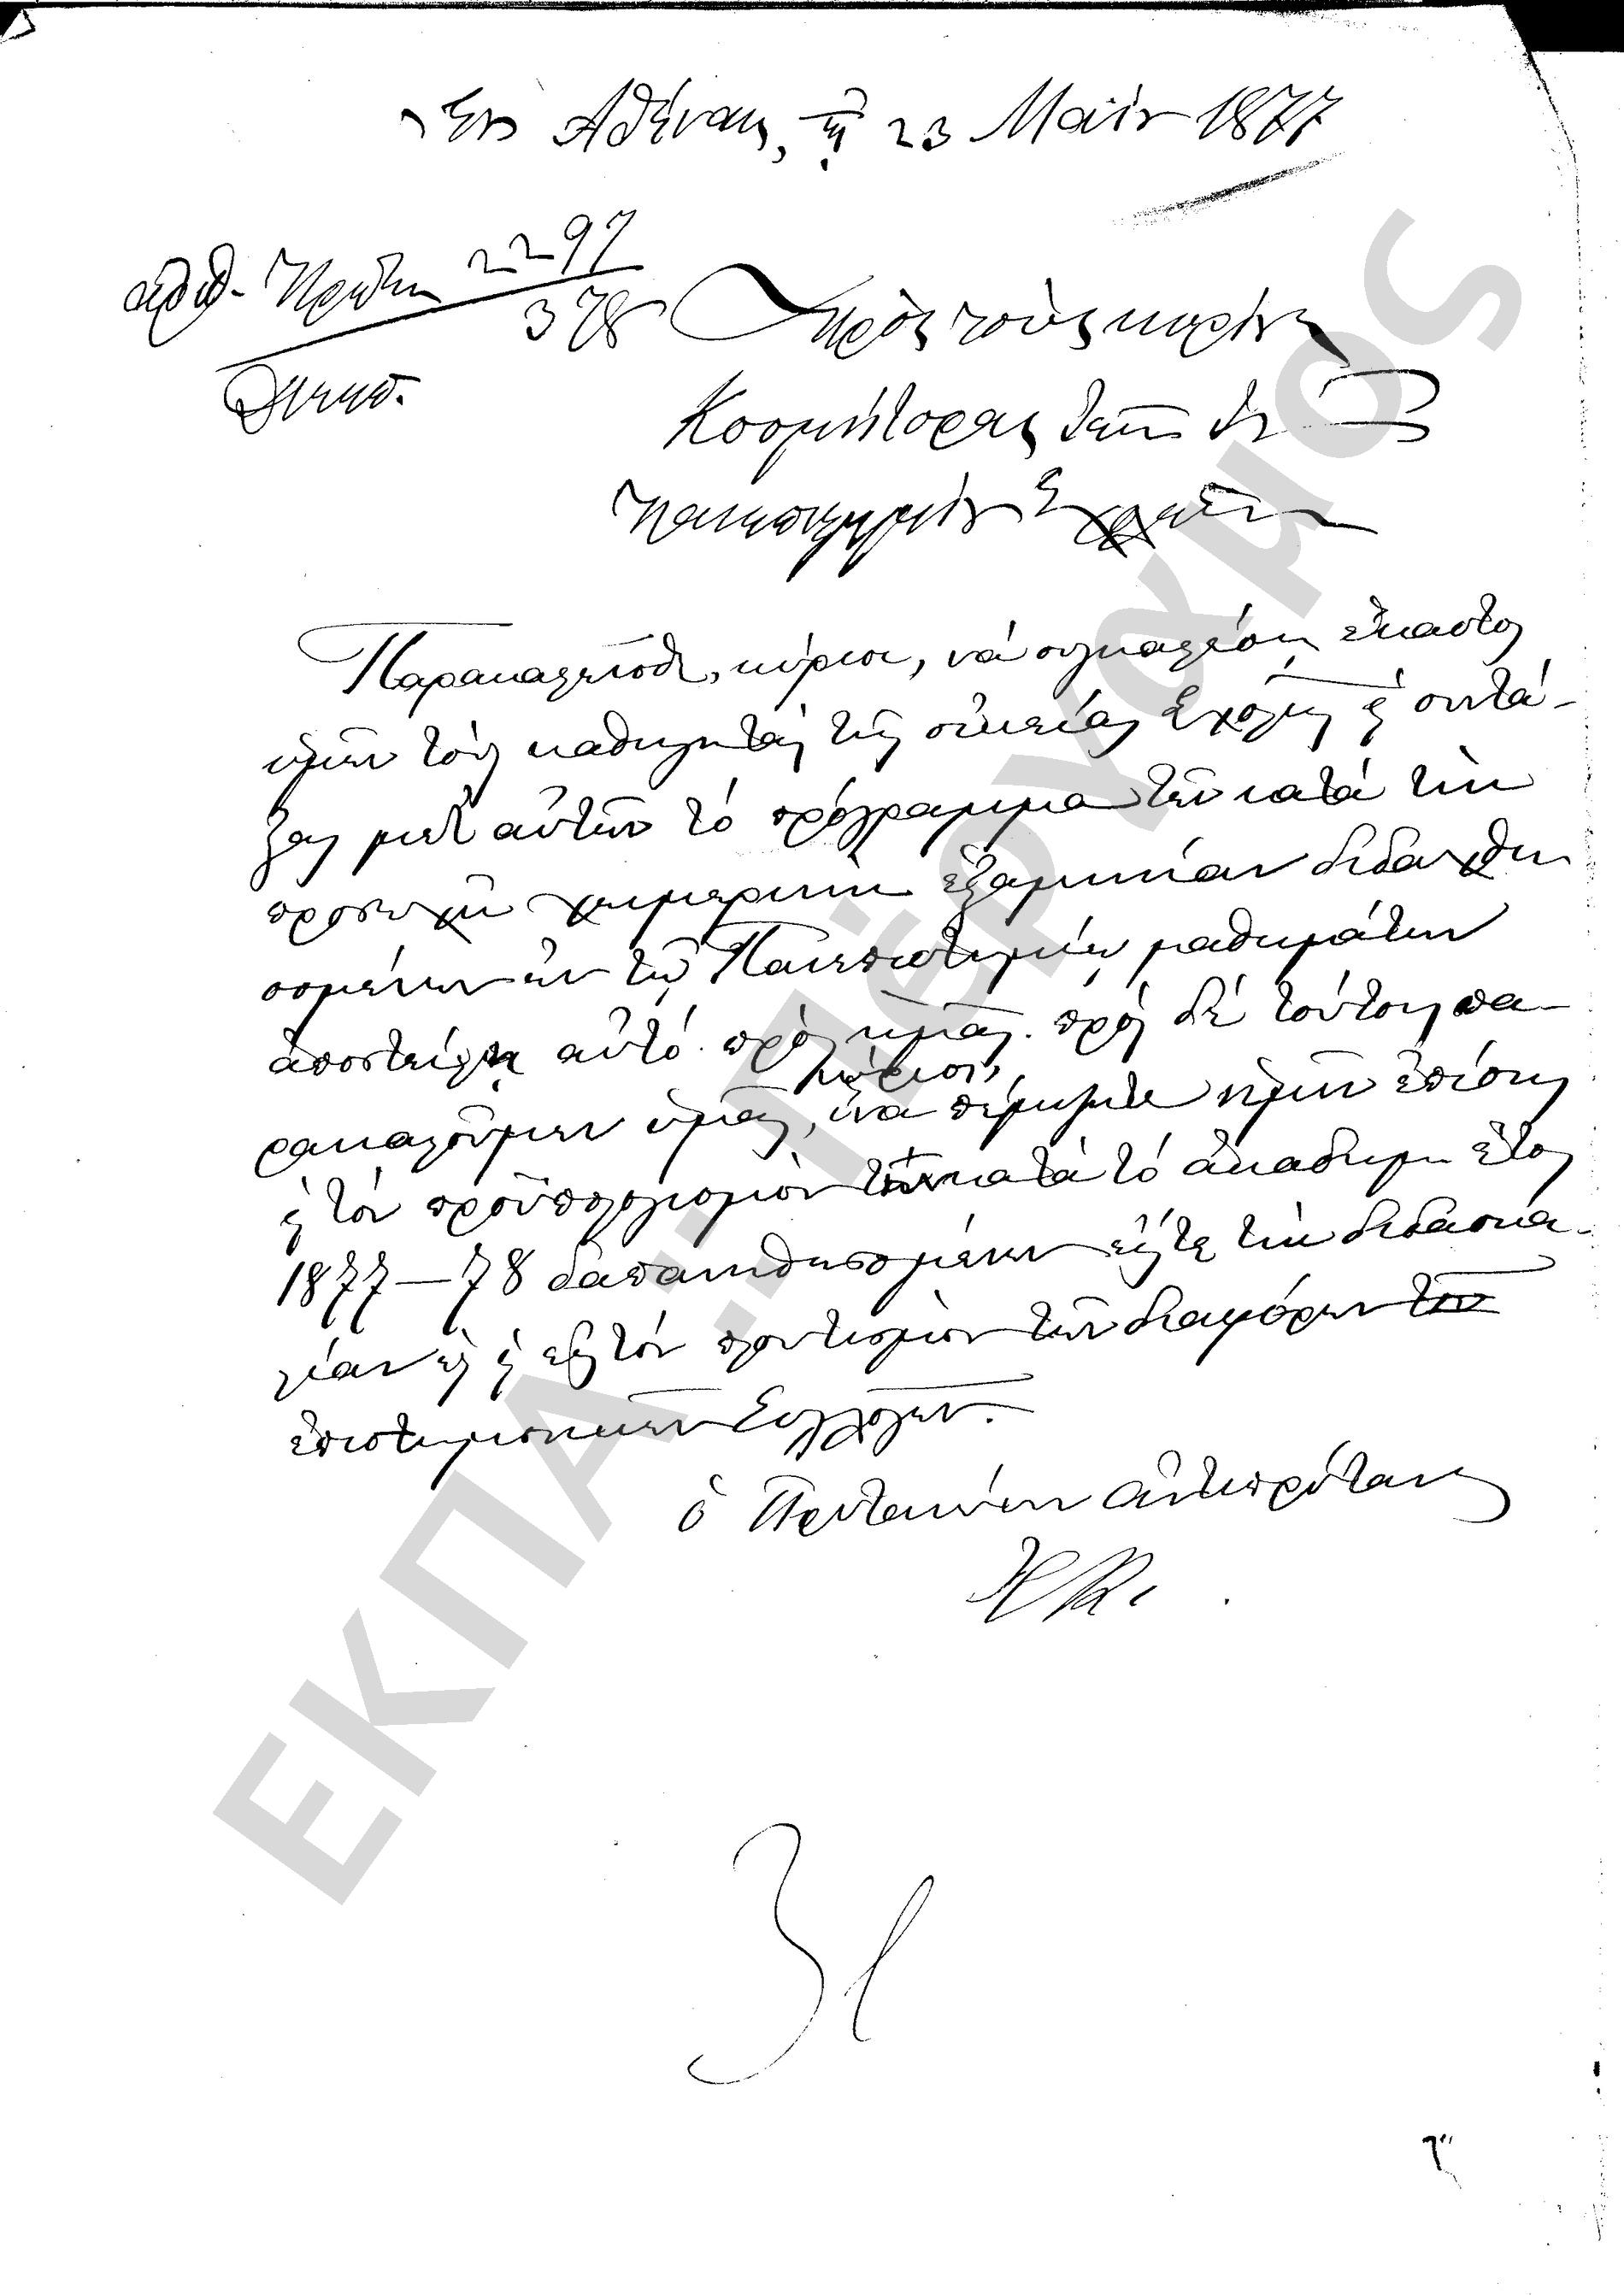 Ἐν Ἀθήναις, τῇ 23 Μαΐου 1877
ἀριθ. Πρωτ. 2297
378
Διεκπ.
Πρὸς τοὺς κυρίους
Κοσμήτορας τῶν ἐν τῷ
Πανεπιστημίῳ Σχολῶν
Παρακαλεῖσθε, κύριοι, νά συγκαλέσῃ ἕκαστος
ὑμῶν τούς καθηγητάς τῆς οἰκείας Σχολῆς ϗ συντά-
ξας μετ' αὐτῶν τό πρόγραμμα τῶν κατά τήν
προσεχῆ χειμερινήν ἑξαμηνίαν διδαχθη
σομένων ἐν τῷ Πανεπιστημίῳ μαθημάτων
ἀποστείλῃ αὐτό πρός ἡμᾶς. πρός δέ τούτοις πα-
ρακαλοῦμεν ὑμᾶς, κύριοι, ἵνα πέμψητε ἡμῖν ἐπίσης
ϗ τόν προϋπολογισμόν τῶν κατά τό ἀκαδημ. ἔτος
1877—78 δαπανηθησομένων εἴς τε τήν διδασκα-
λίαν ϗ εἰς τόν πλουτισμόν τῶν διαφόρων
ἐπιστημονικῶν Συλλογῶν.
ὁ Πρυτανεύων ἀντιπρύτανις
31
ΕΚΠΑ... ΠΕΡΓΑΜΟΣ